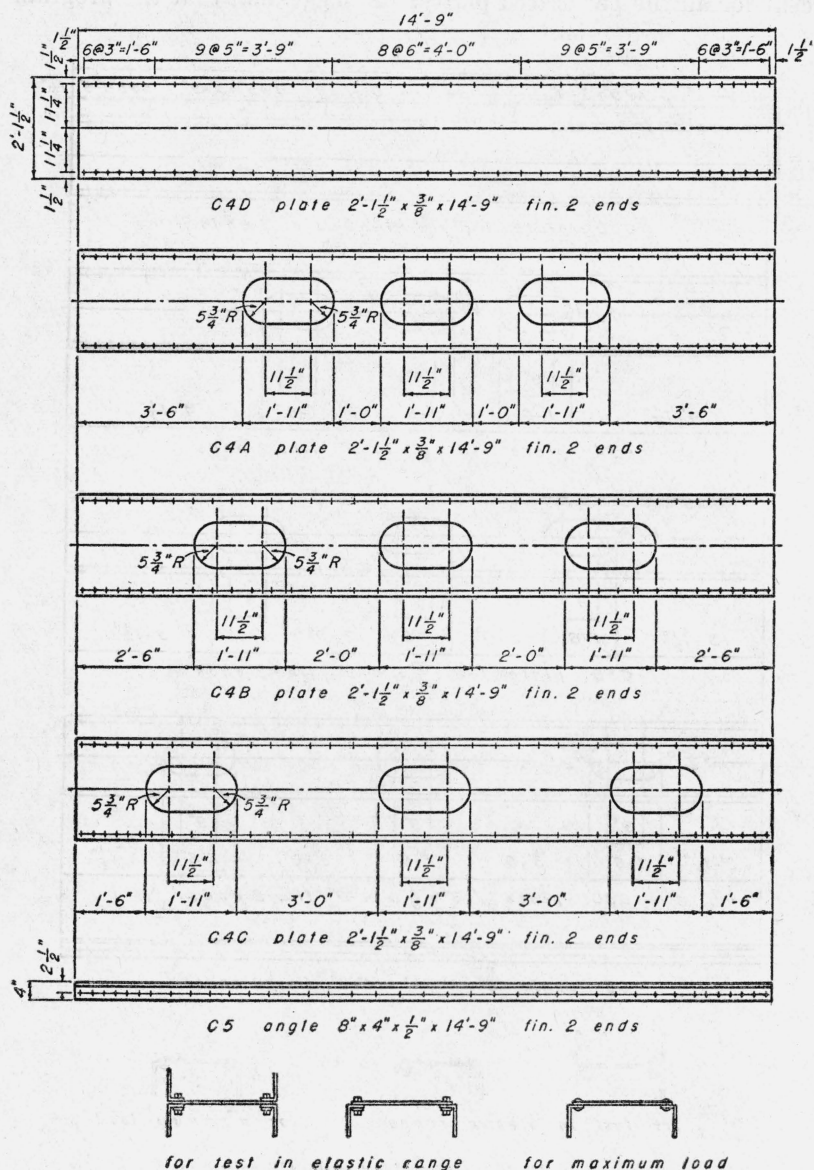 14'-9"
1 1/2" 6@3"=1'-6" 9@5"=3'-9" 8@6"=4'-0" 9@5"=3'-9" 6@3"=1'-6" 1 1/2"
1 1/2"
2'-1 1/2"
11 1/4"
11 1/4"
1 1/2"
C4D plate 2'-1 1/2" x 3/8" x 14'-9" fin. 2 ends
5 3/4" R 5 3/4" R
11 1/2" 11 1/2" 11 1/2"
3'-6" 1'-11" 1'-0" 1'-11" 1'-0" 1'-11" 3'-6"
C4A plate 2'-1 1/2" x 3/8" x 14'-9" fin. 2 ends
5 3/4" R 5 3/4" R
11 1/2" 11 1/2" 11 1/2"
2'-6" 1'-11" 2'-0" 1'-11" 2'-0" 1'-11" 2'-6"
C4B plate 2'-1 1/2" x 3/8" x 14'-9" fin. 2 ends
5 3/4" R 5 3/4" R
11 1/2" 11 1/2" 11 1/2"
1'-6" 1'-11" 3'-0" 1'-11" 3'-0" 1'-11" 1'-6"
C4C plate 2'-1 1/2" x 3/8" x 14'-9" fin. 2 ends
2 1/2"
4"
C5 angle 8" x 4" x 1/2" x 14'-9" fin. 2 ends
for test in elastic range for maximum load